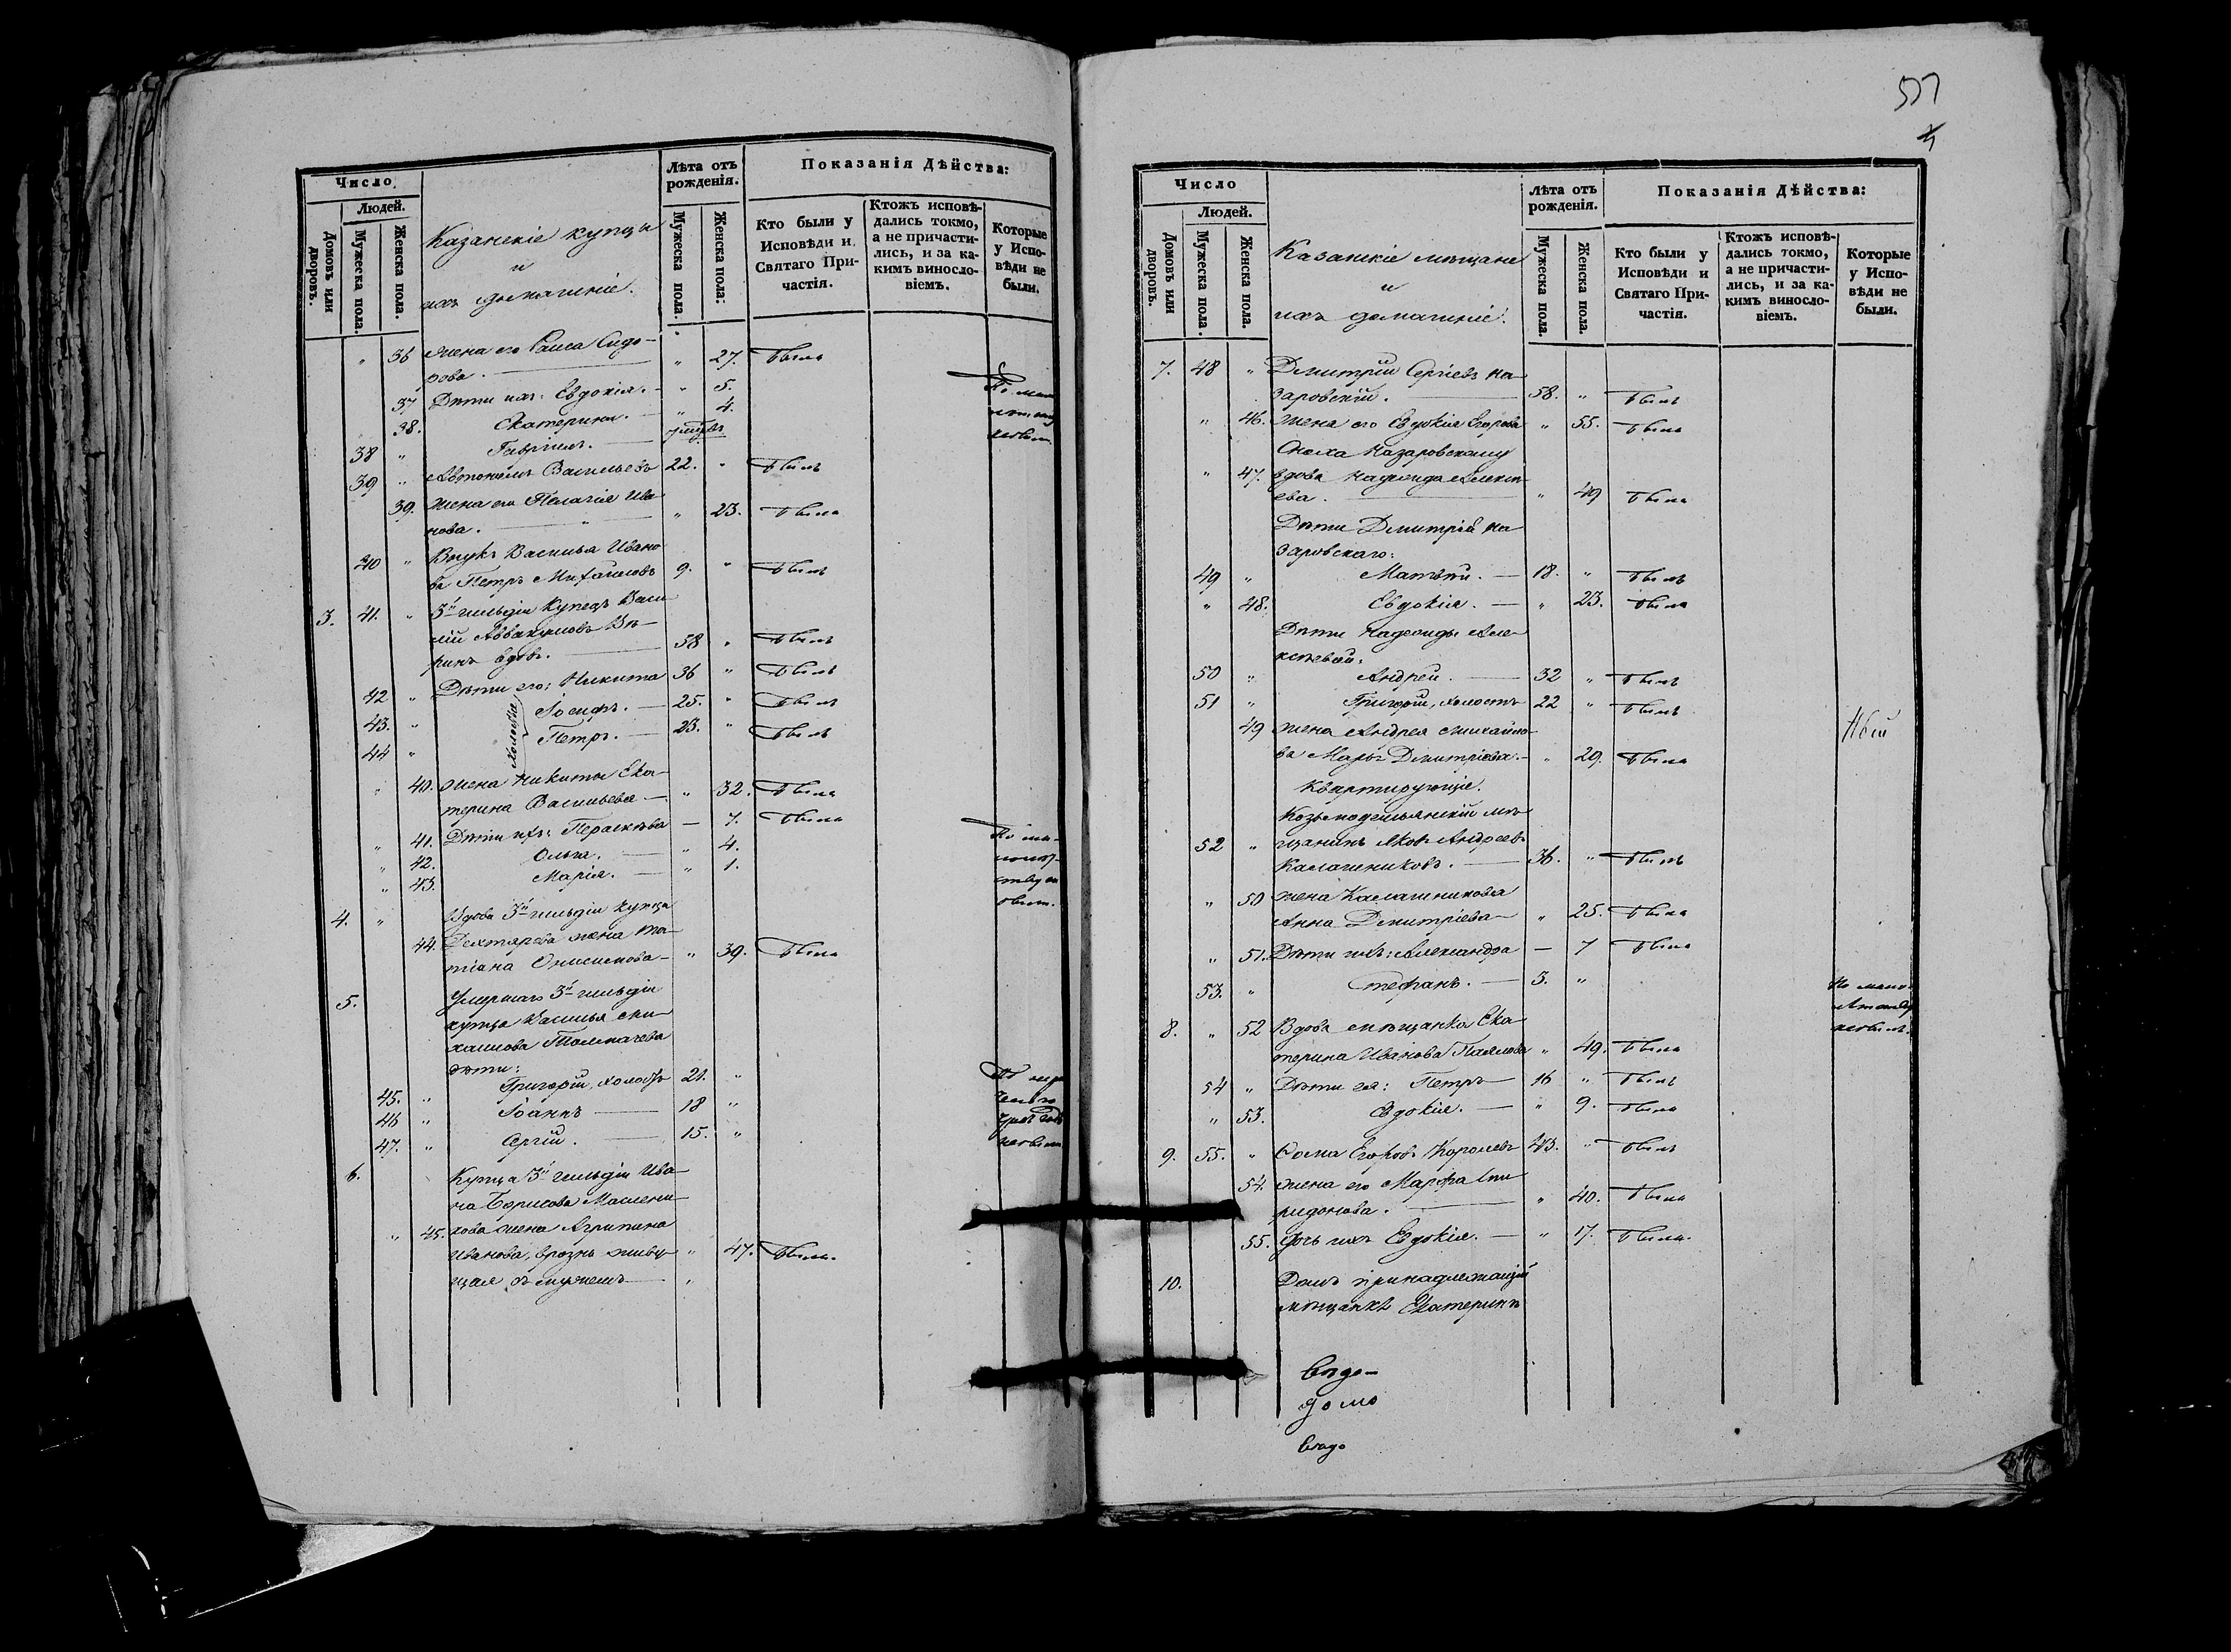 Число
Людей.
Домовъ или дворовъ.
Мужеска пола.
Женска пола.
Казанскіе купцы
и
ихъ домашніе.
Лѣта отъ рожденія.
Мужеска пола.
Женска пола:
Показанія Дѣйства:
Кто были у Исповѣди и Святаго Причастія.
Ктожъ исповѣдались токмо, а не причастились, и за какимъ винословіемъ.
Которые у Исповѣди не были.
" 36 жена его Раиса Сидо-
рова. " 27. была
37 Дѣти ихъ: Евдокія. " 5.
38. Екатерина. " 4.
38 " Гавріилъ.
39 " Автономъ Васильевъ 22. " былъ
39. жена его Пелагія Ива
нова. " 23. была
40 " Внукъ Василья Ивано
ва Петръ Михайловъ 9. " былъ
3. 41. " 3й гильдіи купецъ Васи
лій Аввакумовъ
вдовъ. 58 " былъ
42 " Дѣти его: Никита 36 " былъ
43. " Іосифъ. 25. " былъ
44 " Петръ. 23. " былъ
холосты
" 40. жена Никиты Ека-
терина Васильева " 32. была
" 41. Дѣти ихъ: Параскева — 7. была
" 42. Ольга. " 4.
" 43. Марія. " 1.
4. " Вдова 3й гильдіи купца
44. Дехтярева жена Та-
тіана Онисимова " 39. была
5. Умершаго 3й гильдіи
купца Василья Ми-
хаилова Толмачева
дѣти:
45. " Григорій, холостъ 21. "
46 " Іоаннъ 18 "
47. " Сергій. 15. "
6. Купца 3й гильдіи Ива-
на Борисова
" 45. жена Агрипина
Иванова, врознь живу-
щая съ мужемъ " 47. была.
Число
Людей.
Домовъ или дворовъ.
Мужеска пола.
Женска пола.
Казанскіе мѣщане
и
ихъ домашніе.
Лѣта отъ рожденія.
Мужеска пола.
Женска пола.
Показанія Дѣйства:
Кто были у Исповѣди и Святаго Причастія.
Ктожъ исповѣдались токмо, а не причастились, и за какимъ винословіемъ.
Которые у Исповѣди не были.
7. 48 " Дмитрій Сергіевъ На
заровскій. 58. " былъ
" 46. жена его Евдокія Егорова " 55. была
Сноха Назаровскаго
" 47. вдова Надежда Алексѣ
ева. " 49 была
Дѣти Дмитрія На
заровскаго:
49 " Матвѣй. 18. " былъ
" 48. Евдокія. " 23. была
Дѣти Надежды Але-
ксѣевой:
50 " Андрей. 32 " былъ
51 " Григорій, холостъ 22 " былъ
49 жена Андрея Михайло-
ва Марья Дмитріева. " 29. была
Квартирующіе.
Козьмодемьянскій мѣ
52 " щанинъ Яковъ Андреевъ
Калашниковъ. 36. " былъ
" 50 жена Калашникова
Анна Дмитріева " 25. была
" 51. Дѣти ихъ: Александра — 7 была
53. " Стефанъ. 3. "
8. " 52 Вдова мѣщанка Ека
терина Иванова " 49. была
54 " Дѣти ея: Петръ 16 " былъ
" 53. Евдокія. " 9. была
9. 55. " Ѳома Егоровъ Королевъ 43. " былъ
54. жена его Марфа Спи
ридонова. " 40. была
55. дочь ихъ Евдокія. " 17. была.
10. Домъ принадлежащій
мѣщанкѣ Екатеринѣ
домо